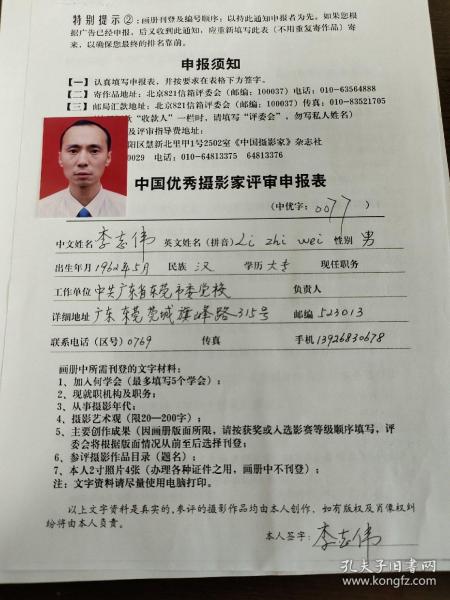 特别提示②：画册刊登及编号顺序：以持此通知申报者为先。如果您根
据广告已经申报，后又收到此通知，应重新填写此表（不用重复寄作品）寄
来，以确保您最终的排名靠前。
申报须知
【一】认真填写申报表，并按要求在表格下方签字。
【二】寄作品地址：北京821信箱评委会（邮编：100037）电话：010-63564888
【三】邮局汇款地址：北京821信箱评委会（邮编：100037）传真：010-83521705
“收款人”一栏时，请填写“评委会”，勿写私人姓名）
及评审指导费地址：
阳区慧新北里甲1号2502室《中国摄影家》杂志社
0029 电话：010-64813375 64813376
中国优秀摄影家评审申报表
（中优字：0077）
中文姓名 李志伟 英文姓名（拼音）Li zhi wei 性别 男
出生年月 1962年5月 民族 汉 学历 大专 现任职务
工作单位 中共广东省东莞市委党校 负责人
详细地址 广东东莞莞城旗峰路315号 邮编 523013
联系电话（区号）0769 传真 手机 13926830678
画册中所需刊登的文字材料：
1、加入何学会（最多填写5个学会）；
2、现就职机构及职务；
3、从事摄影年代；
4、摄影艺术观（限20—200字）；
5、主要创作成果（因画册版面所限，请按获奖或入选影赛等级顺序填写，评
委会将根据版面情况从前至后选择刊登；
6、参评摄影作品目录（题名）；
7、本人2寸照片4张（办理各种证件之用，画册中不刊登）；
注：文字资料请尽量使用电脑打印。
以上文字资料是真实的，参评的摄影作品均由本人创作，如有版权及肖像权纠
纷将由本人负责。
本人签字：李志伟
孔夫子旧书网
www.kongfz.com